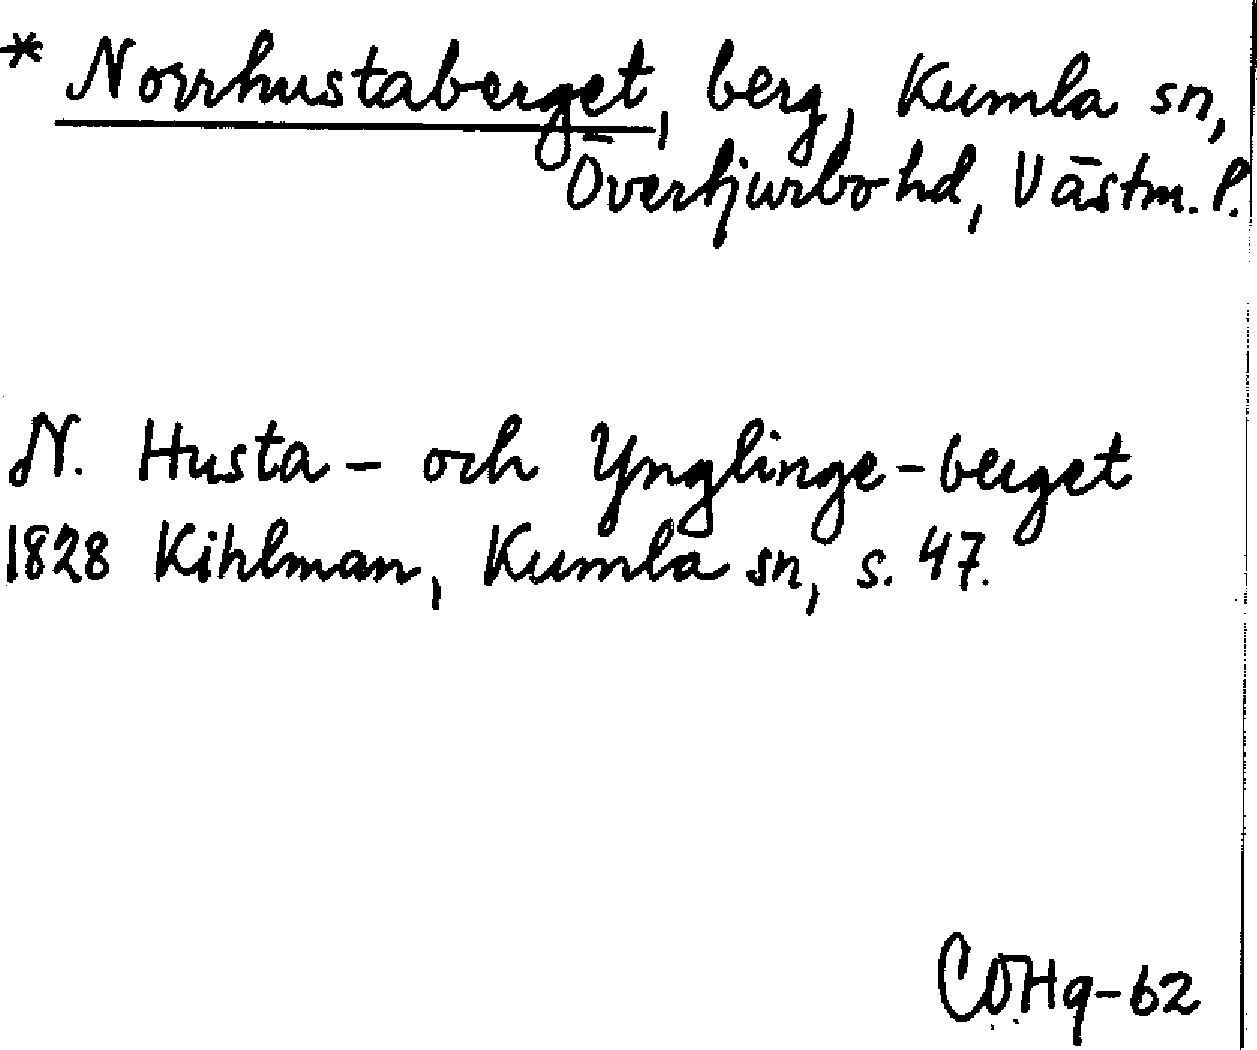 * Norrhustaberget, berg, Kumla sn,
Övertjurbo hd, Västm. l.
N. Husta - och Ynglinge-berget
1828 Kihlman, Kumla sn, s. 47.
COHq-62